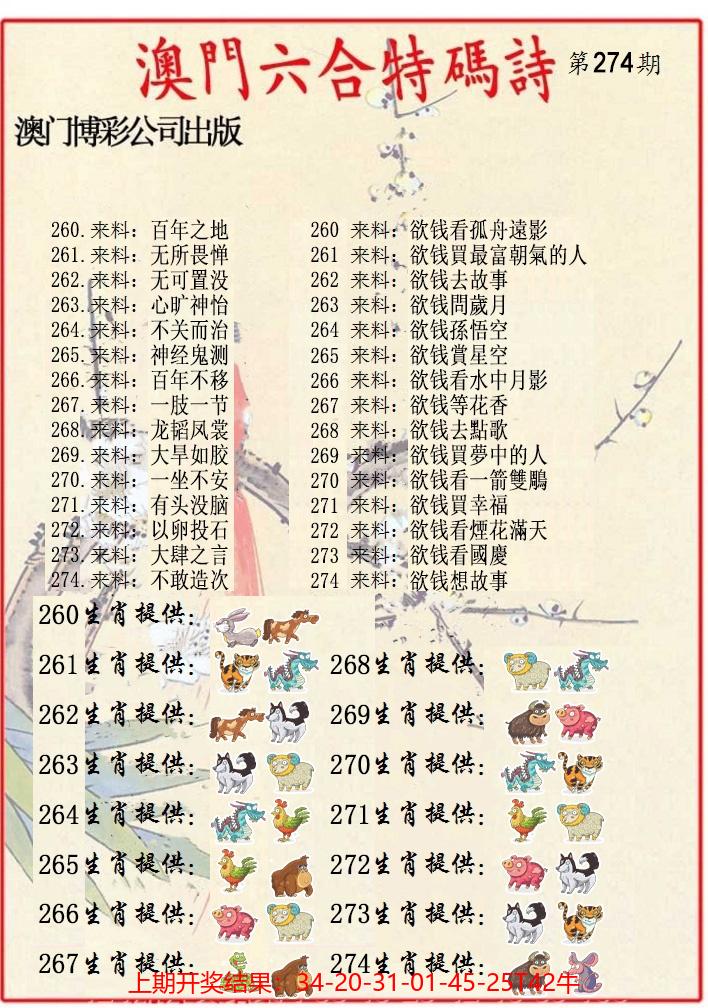 澳門六合特碼詩 第274期
澳门博彩公司出版
260.来料：百年之地
261.来料：无所畏惮
262.来料：无可置没
263.来料：心旷神怡
264.来料：不关而治
265.来料：神经鬼测
266.来料：百年不移
267.来料：一肢一节
268.来料：龙韬凤裳
269.来料：大旱如胶
270.来料：一坐不安
271.来料：有头没脑
272.来料：以卵投石
273.来料：大肆之言
274.来料：不敢造次
260 来料：欲钱看孤舟遠影
261 来料：欲钱買最富朝氣的人
262 来料：欲钱去故事
263 来料：欲钱問歲月
264 来料：欲钱孫悟空
265 来料：欲钱賞星空
266 来料：欲钱看水中月影
267 来料：欲钱等花香
268 来料：欲钱去點歌
269 来料：欲钱買夢中的人
270 来料：欲钱看一箭雙鵰
271 来料：欲钱買幸福
272 来料：欲钱看煙花滿天
273 来料：欲钱看國慶
274 来料：欲钱想故事
260生肖提供：
261生肖提供：
262生肖提供：
263生肖提供：
264生肖提供：
265生肖提供：
266生肖提供：
267生肖提供：
268生肖提供：
269生肖提供：
270生肖提供：
271生肖提供：
272生肖提供：
273生肖提供：
274生肖提供：
上期开奖结果：34-20-31-01-45-25T42牛